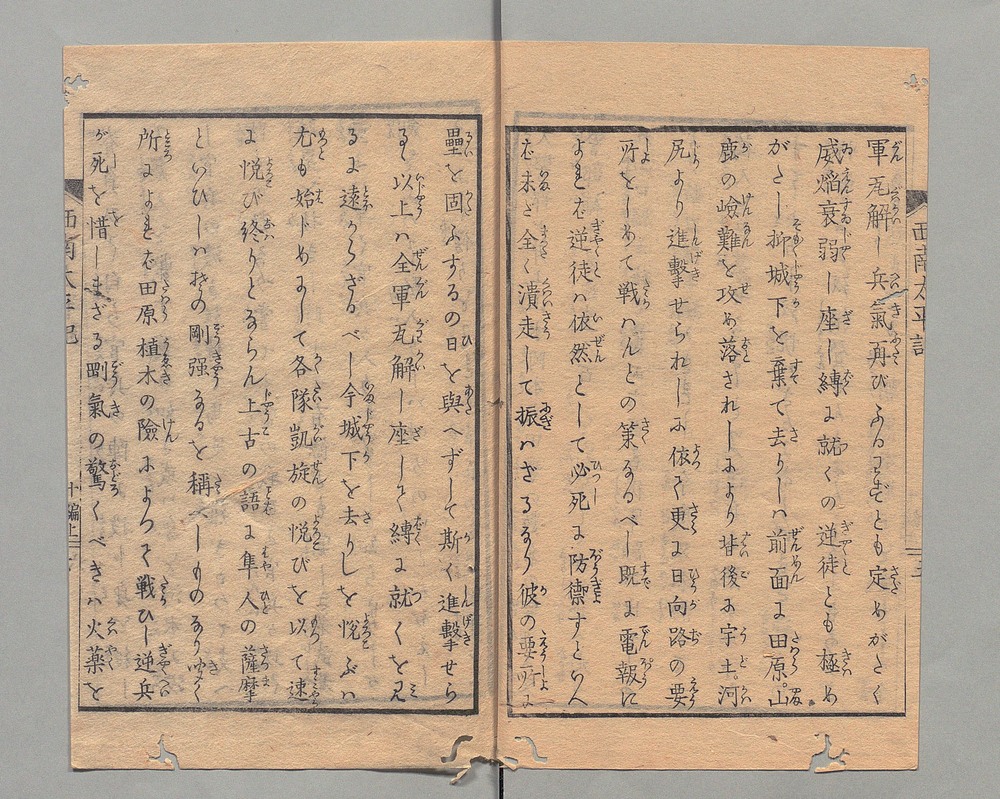 軍瓦解し兵氣再びふるはずとも定めがたく
威焔衰弱し座し縛に就くの逆徒とも極め
がたし抑城下を棄て去りしハ前面に田原山
鹿の嶮難を攻め落されしにより背後に宇土河
尻より進撃せられしに依て更に日向路の要
所をしめて戦ハんとの策なるべし既に電報に
よれば逆徒ハ依然として必死に防禦すといへ
ば未だ全く潰走して振ハざるなり彼の要所に
壘を固ふするの日を與へずして斯く進撃せら
るゝ以上ハ全軍瓦解し座して縛に就くを見
るに遠からざるべし今城下を去りしを悦ぶハ
尤も始じめにして各隊凱旋の悦びを以て速
に悦び終りとならん上古の語に隼人の薩摩
といひしハ其の剛强なるを稱へしものなり聞く
所によれば田原植木の險によつて戦ひし逆兵
が死を惜しまざる剛氣の驚くべきハ火薬を
西南太平記
三
西南太平記
十編上